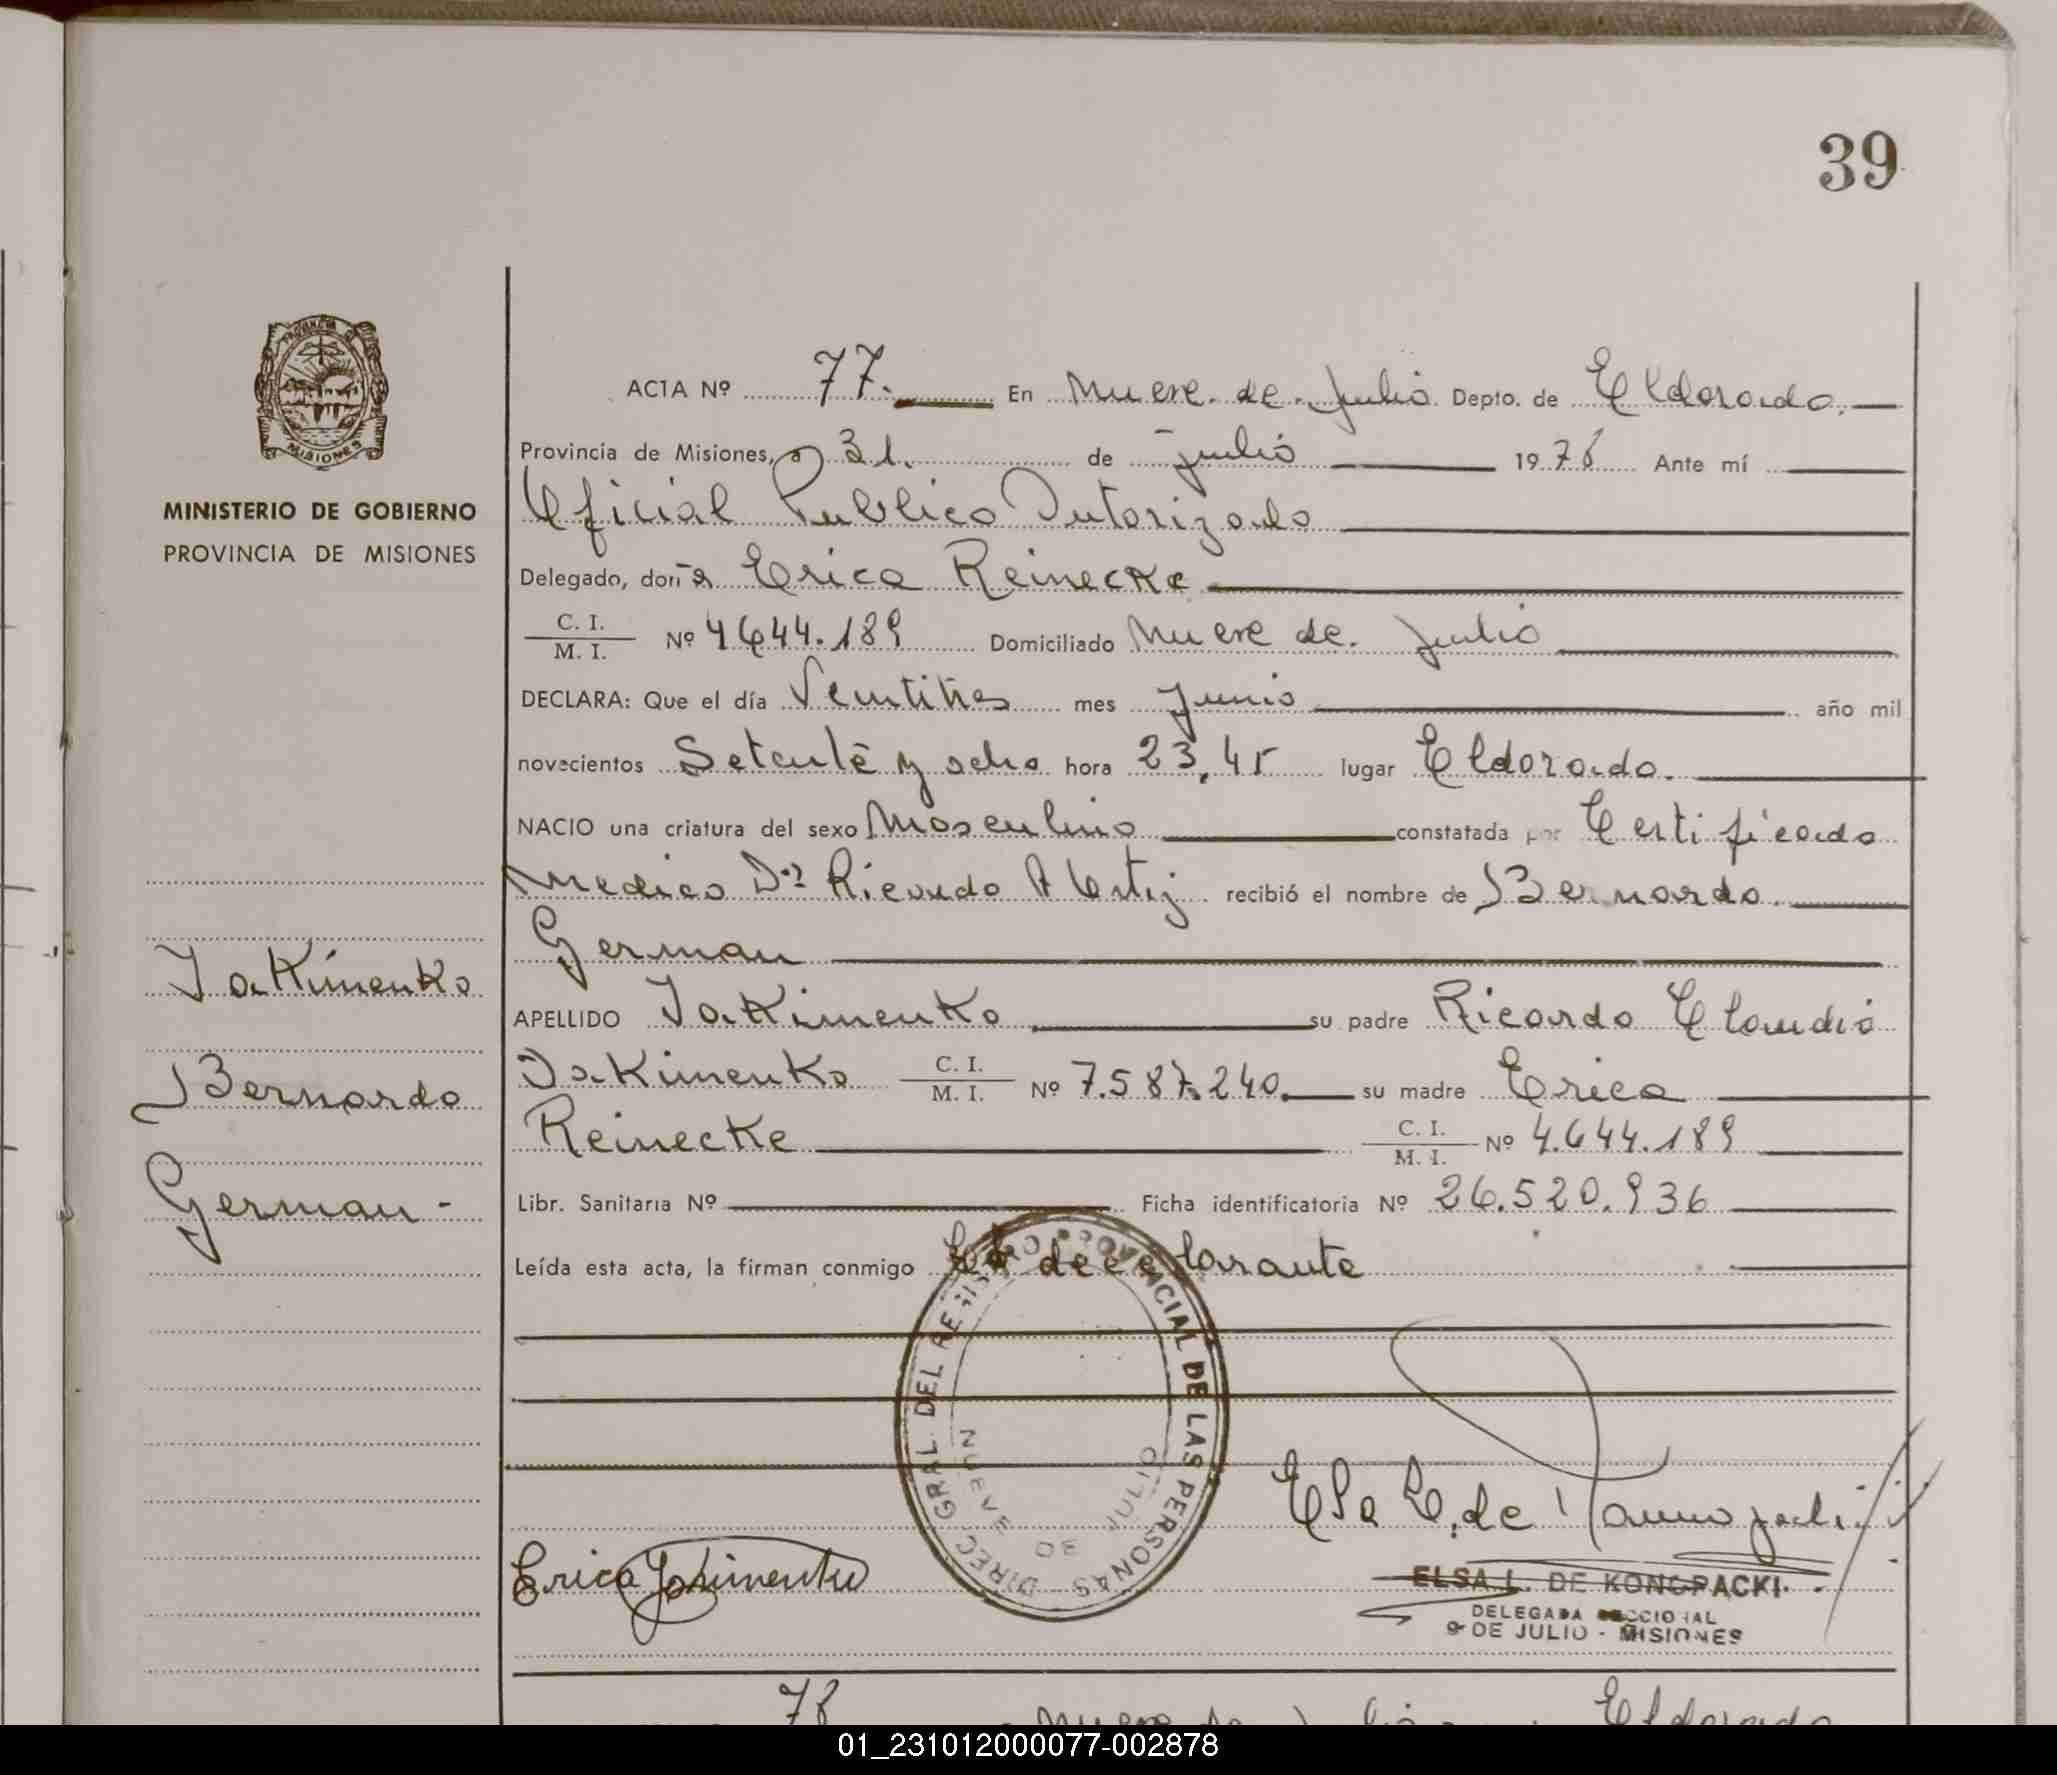 39
ACTA Nº 77. En Nueve de Julio Depto. de Eldorado.
Provincia de Misiones, a 31. de julio 1978 Ante mí
MINISTERIO DE GOBIERNO
PROVINCIA DE MISIONES
Oficial Publico Autorizado
Delegado, doña Erica Reinecke
C. I.
M. I. Nº 4644.189 Domiciliado Nueve de Julio
DECLARA: Que el día Ventitres mes Junio año mil
novecientos Setenta y ocho hora 23,45 lugar Eldorado.
NACIO una criatura del sexo Masculino constatada por Certificado
Medico Dr Ricardo recibió el nombre de Bernardo
German
APELLIDO Jakimenko su padre Ricardo Claudio
Jakimenko C. I.
M. I. Nº 7.587.240. su madre Erica
Reinecke C. I.
M. I. Nº 4.644.189
Libr. Sanitaria Nº Ficha identificatoria Nº 26.520.936
Leída esta acta, la firman conmigo declarante
Jakimenko
Bernardo
German -
DIREC GRAL. DEL REGISTRO PROVINCIAL DE LAS PERSONAS
NUEVE DE JULIO
Elsa L. de
Erica Jakimenko
ELSA L. DE KONOPACKI
DELEGADA SECCIONAL
9 DE JULIO - MISIONES
78 Nueve de Julio Eldorado
01_231012000077-002878